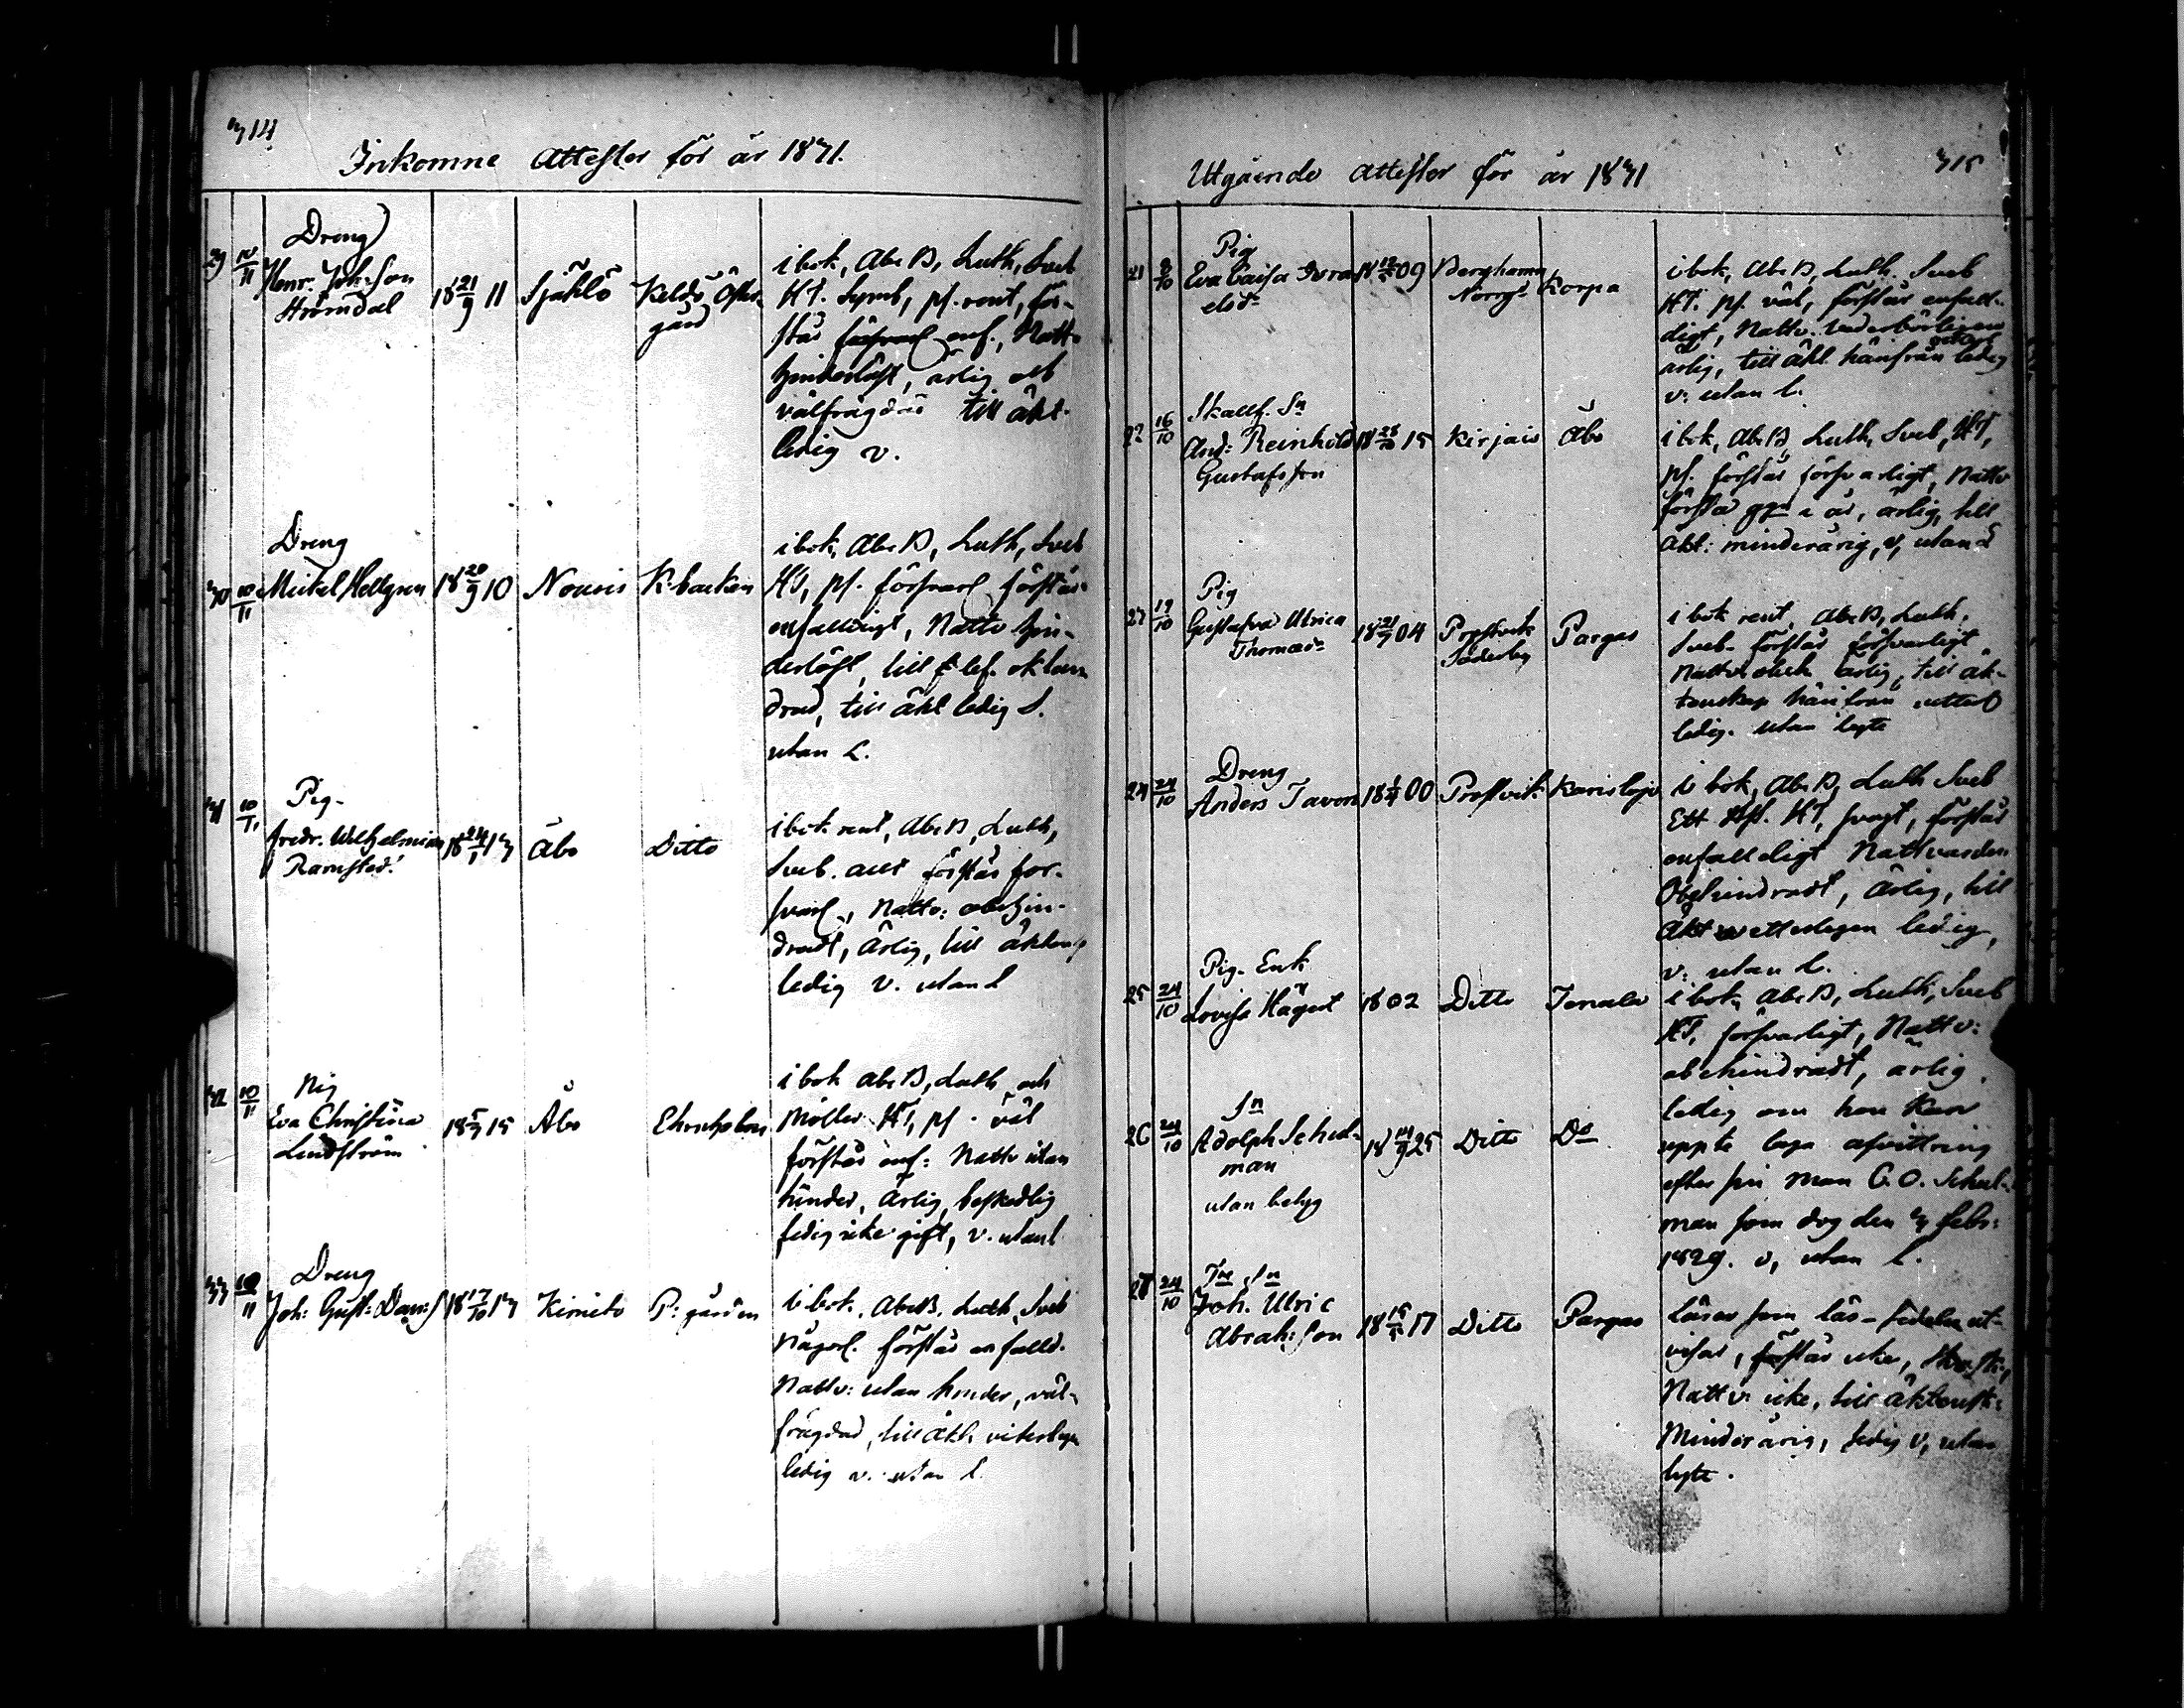 314
Inkomne Attester för år 1831.
29 10/11 Dreng
Henr. Joh:son
Strömdal
18 21/9 11 Sjählö Keldö Öfter-
gård
i bok, Abc B, Luth, Sveb
HT. Symb, ps. rent, för-
står försvarl enf., Nattv
hinderlöst, ärlig och
välfrägdad till äkt.
ledig v.
30 10/11 Dreng
Mickel Hellgren 18 20/9 10 Nouvis K-backen
i bok, Abc B, Luth, Sveb
HT, ps. försvarl förstår
enfalldigt, Nattv hin-
derlöst, till lef. oklan-
drad, till äkt ledig S.
utan L.
31 10/11 Pig.
Fredr. Wilhelmina
Ramsted:
18 24/1 13 Åbo Ditto
i bok rent, Abc B, Luth,
Sveb. allt förstår för-
svarl, Nattv: obehin-
dradt, Ärlig, till äkten
ledig v. utan L
32 10/11 Pig
Eva Christina
Lindström
18 5/7 15 Åbo Ehrnholm
i bok Abc B, Luth och
Möller HT, ps. väl
förstår enf: Nattv utan
hinder, Ärlig beskedlig
ledig icke gift, v. utan l
33 10/11 Dreng
Joh: Gust: Dan:s 18 17/10 13 Kimito P: gården
i bok. Abc B. Luth, Sveb
någorl. förstår enfalld.
Nattv: utan hinder, väl-
frägdad, till äkt. vederlagen
ledig v. utan l.
315
Utgående Attester för år 1831
21 8/10 Pig
Eva Caisa Isra-
elsdr
18 12/5 09 Berghamn
Norrgd
Korpo
i bok, Abc B, Luth. Sveb
HT. ps. väl, förstår enfall-
digt, Nattv. vederbörligen
ärlig, till äkt. härifrån ledig
v: utan l.
22 16/10 Skallf. Sn
And: Reinhold
Gustafsson
18 28/10 15 Kirjais Åbo
i bok, Abc B, Luth, Sveb, HT,
ps. förstår försvarligt, Nattv
första ggn i år, ärlig, till
äkt: minderårig, v, utan L
23 19/10 Pig
Gustafva Ulrica
Thomasdr
18 21/7 04 Prostvik
Söderby
Pargas
i bok rent, Abc B, Luth,
Sveb. förstår försvarligt
Nattv ärlig, till äk-
tenskap härifrån
ledig. utan lyte
24 24/10 Dreng
Anders Tavon 18 00 Prostvik Karislojo
i bok, Abc B, Luth Sveb
Ett HT, svagt, förstår
enfalldigt Nattvarden
Obehindradt, Ärlig, till
Äkt wetterlagen ledig,
v: utan L.
25 24/10 Pig. Enk
Lovisa Hägert 1802 Ditto Tenala
i bok, Abc B, Luth, Sveb
HT, försvarligt, Nattv:
obehindradt, ärlig,
ledig om hon kan
uppte laga afvittring
efter sin man C. O. Schul-
man som dog den 3 Febr:
1829. v, utan L.
26 24/10 Sn
Adolph Schul-
man
utan betyg
18 14/9 25 Ditto Do
27 24/10 Tn Sn
Joh. Ulric
Abrah:son
18 15/5 17 Ditto Pargas
Läser som läs-sedeln ut-
visar, förstår icke,
Nattv: icke, till äktensk:
Minderårig, ledig v, utan
lyte.